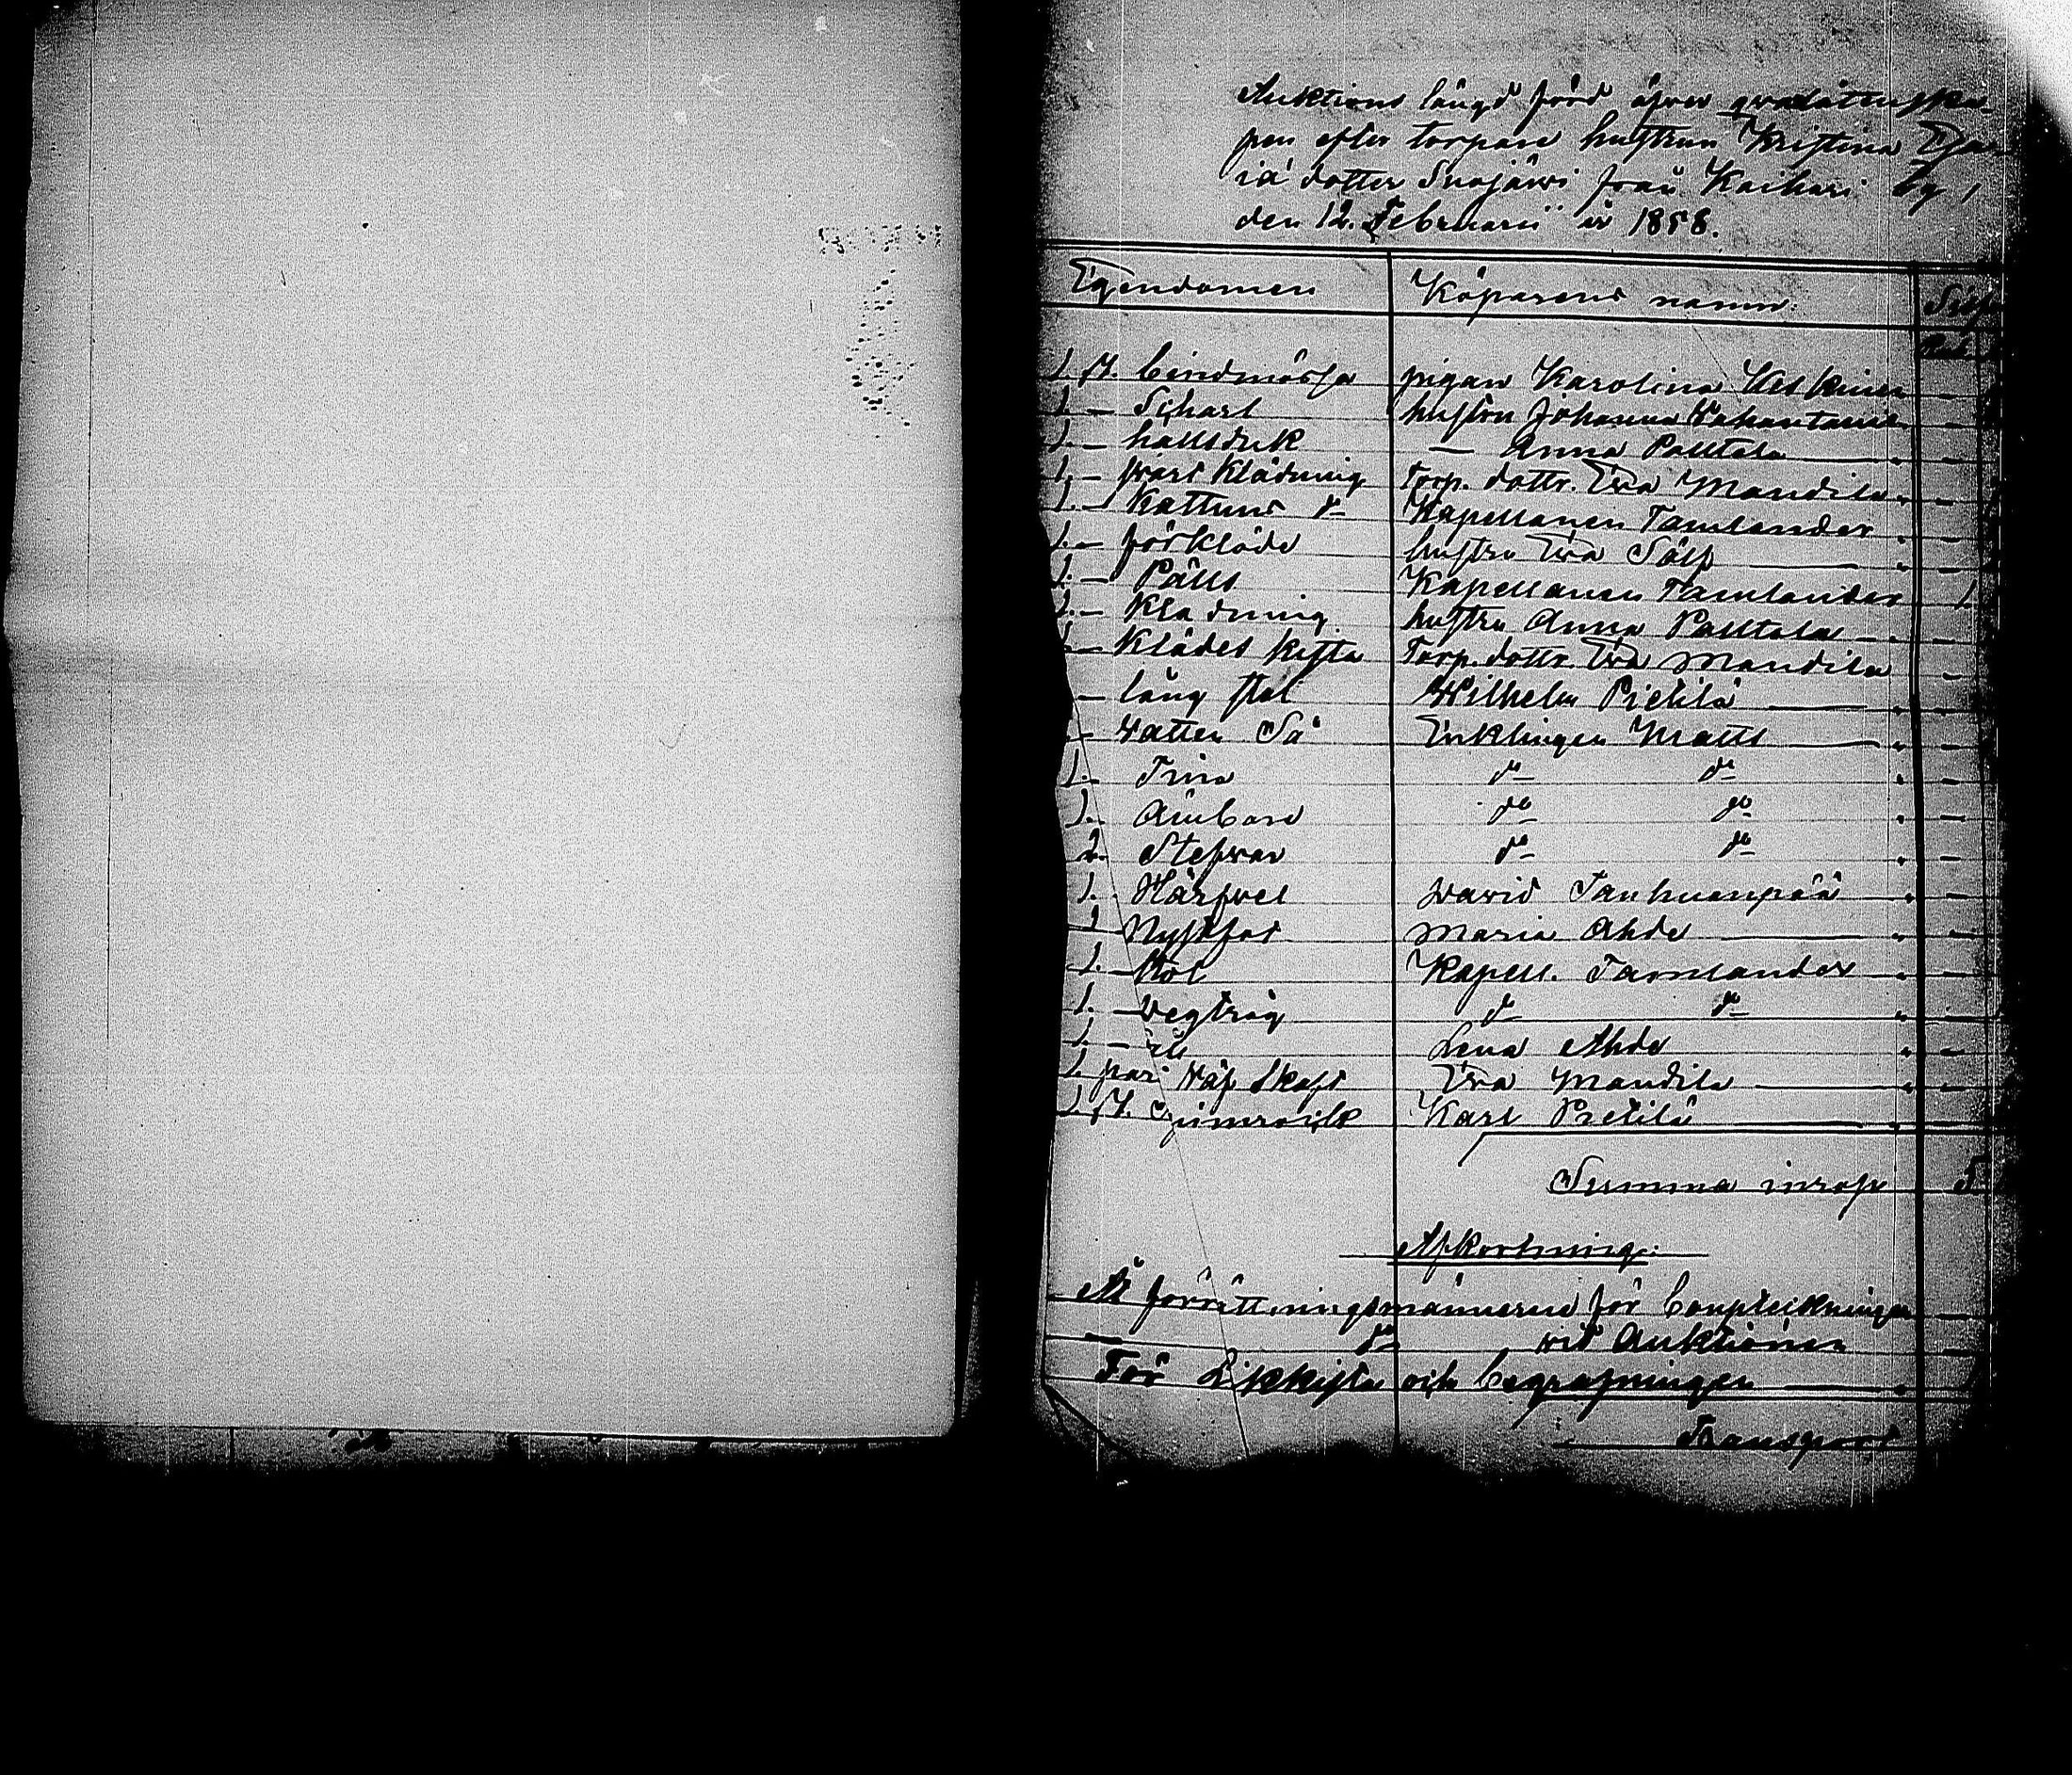 Auktions längd förd öfver qvarlåtenska-
pen efter torpare hustrun Kristina Esa
iä dotter Suojärvi från Kaihari by,
den 12. Februarii år 1858.
Egendomen Köparens namn: Silf
Rub.
1. st. bindmössa pigan Karolina Keskinen
1. — Scharl hustru Johanna Wahantanie
1. — hallsduk — Anna Palttala
1. — klädning Torp. dottr. Eva Mandila
1. — Kattuns do Kapellanen Tamlander
1. — förkläde hustru Eva Sälf
1. — Pälls Kapellanen Tamlander 1.
1. — Kladning hustru Anna Palttala
— Klädes kista Torp. dottr. Eva Mandila
— lång stol Wilhelm Pietilä
— Vatten Så Enklingen Matts
1. Tina do do
1. Ämbare do do
2. Stefvar do do
1. Härfvel David Tanhuanpää
1 Nystfot Maria Ahde
1. — Stol Kapell. Tamlander
1. — Degtråg do do
1. — Lena Ahde
1. par Väf skaft Eva Mandila
1. st. Karl Pietilä
Summa inrop 5
Afkortning:
At förrättningsmännerne för bouptekningen
— do vid Auktionen
För Likkista och begrafningen
Transport